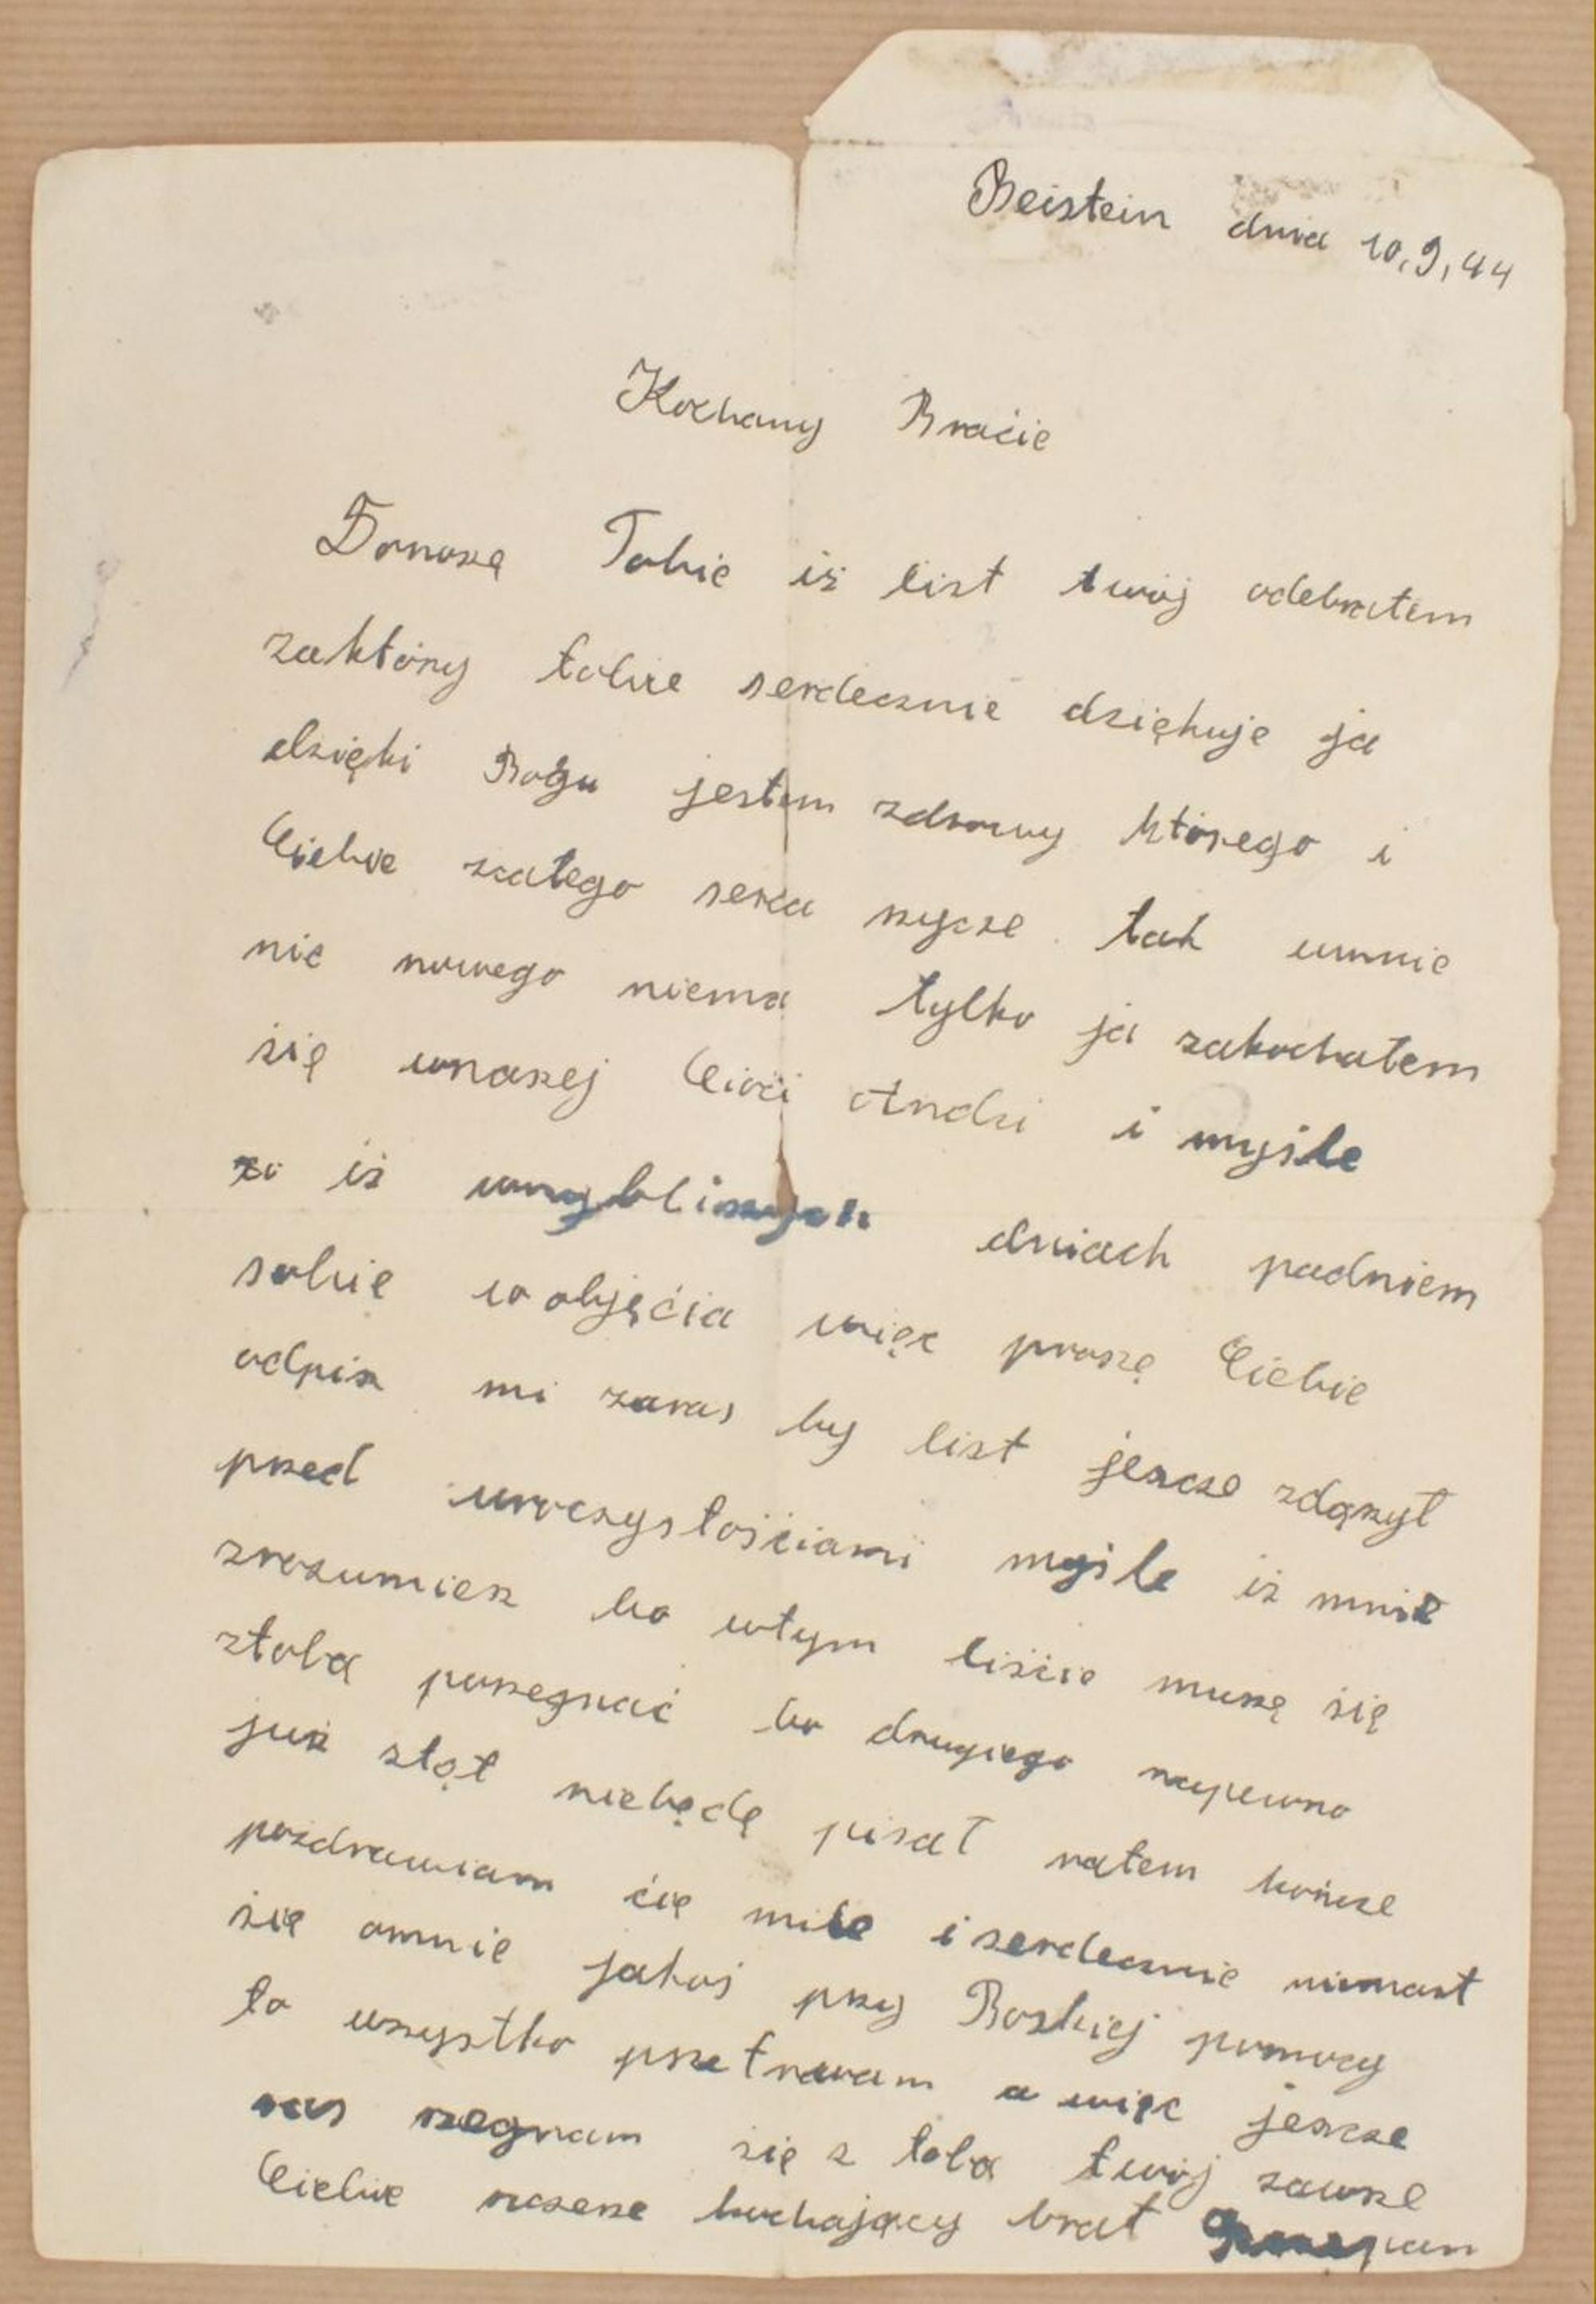 Beistein dnia 10,9,44
Kochany Bracie
Donoszę Tobie iż list twój odebrałem
zaktóry tobie serdecznie dziękuje ja
dzięki Bogu jestem zdrowy którego i
Ciebie zcałego serca rzycze tak umnie
nic nowego niema tylko ja zakochałem
się wnaszej Cioci Andzi i myśle
iż wnajbliszych dniach padniem
sobie w objęcia więc proszę Ciebie
odpisz mi zaras by list jeszcze zdąrzył
przed uroczystościami myśle iż mnie
zrozumiesz bo wtym liście muszę się
ztobą porzegnać bo drugiego napewno
już ztąt niebędę pisał ratem kończe
pozdrawiam cię mile i serdecznie niemart
się omnie jakoś przy Boskiej pomocy
to wszystko przetrwam a więc jeszcze
ras rzegnam się z tobą twój zawsze
Ciebie szczerze kochający brat